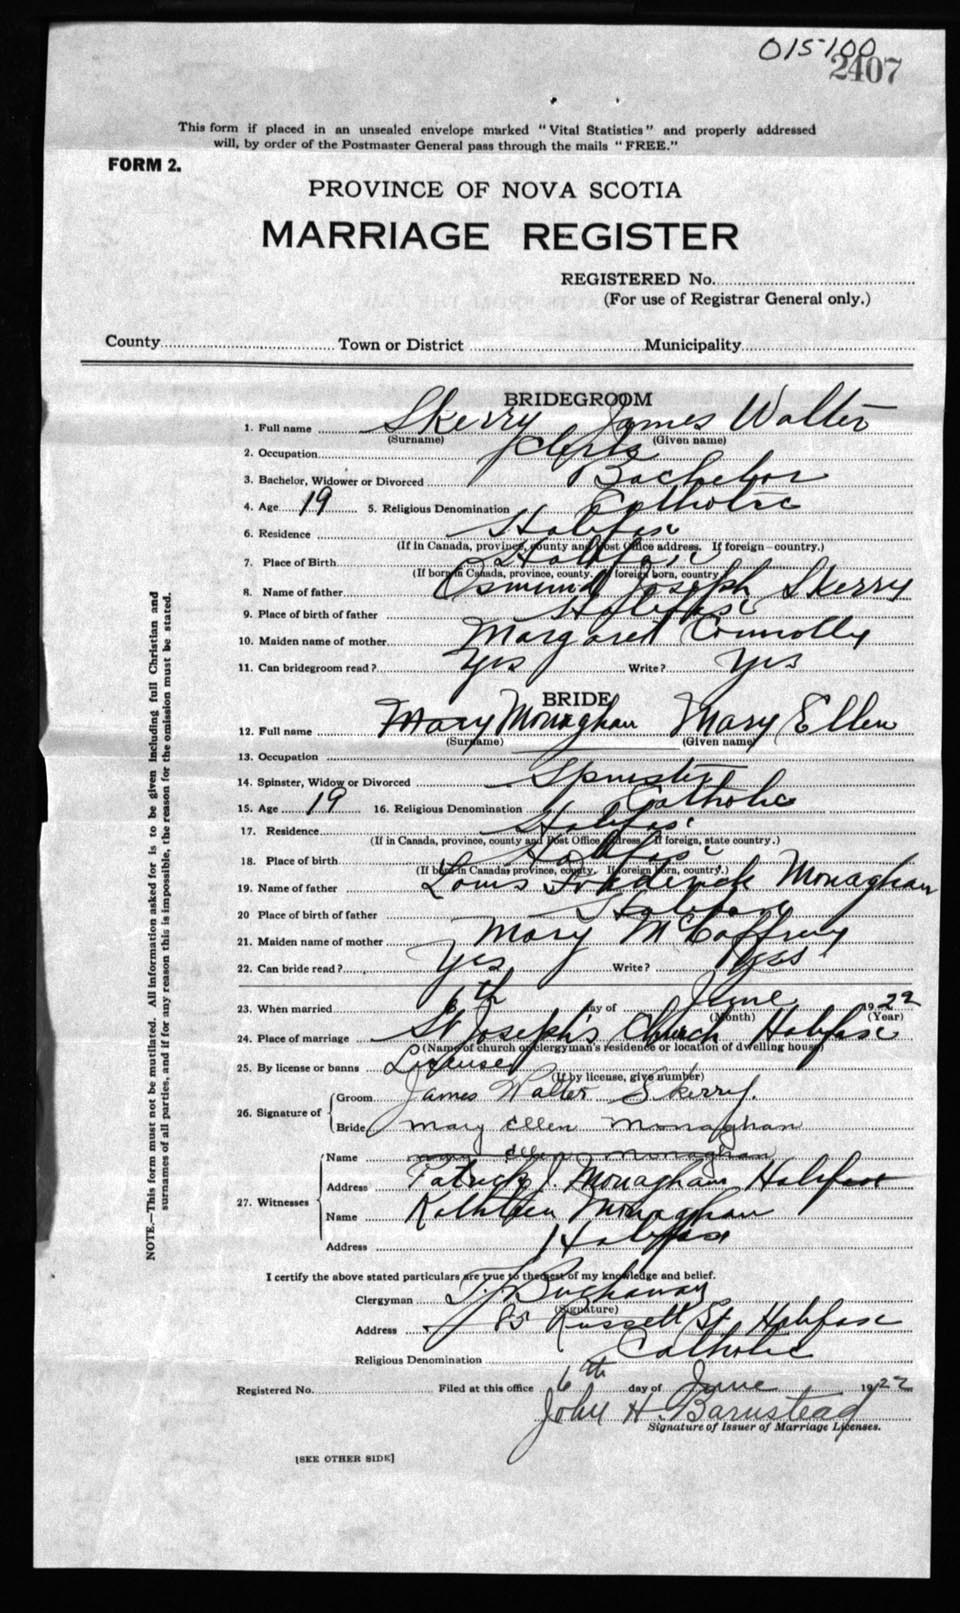 015100
2407
This form if placed in an unsealed envelope marked "Vital Statistics" and properly addressed
will, by order of the Postmaster General pass through the mails "FREE."
FORM 2.
PROVINCE OF NOVA SCOTIA
MARRIAGE REGISTER
REGISTERED No.
(For use of Registrar General only.)
County Town or District Municipality
BRIDEGROOM
1. Full name Skerry James Walter
(Surname) (Given name)
2. Occupation Clerk
3. Bachelor, Widower or Divorced Bachelor
4. Age 19 5. Religious Denomination Catholic
6. Residence Halifax
(If in Canada, province, county and Post Office address. If foreign—country.)
7. Place of Birth Halifax
(If born in Canada, province, county. If foreign born, country.)
8. Name of father Osmund Joseph Skerry
9. Place of birth of father Halifax
10. Maiden name of mother Margaret Connolly
11. Can bridegroom read? Yes Write? Yes
BRIDE
12. Full name Mary Monaghan Mary Ellen
(Surname) (Given name)
13. Occupation
14. Spinster, Widow or Divorced Spinster
15. Age 19 16. Religious Denomination Catholic
17. Residence Halifax
(If in Canada, province, county and Post Office address. If foreign, state country.)
18. Place of birth Halifax
(If born in Canada, province, county. If foreign born, country.)
19. Name of father Louis Monaghan
20 Place of birth of father Halifax
21. Maiden name of mother Mary McCaffrey
22. Can bride read? Yes Write? Yes
23. When married 6th day of June 1922
(Month) (Year)
24. Place of marriage St Joseph's Church Halifax
(Name of church or clergyman's residence or location of dwelling house)
25. By license or banns License
(If by license, give number)
26. Signature of Groom James Walter Skerry.
Bride Mary Ellen Monaghan
27. Witnesses Name Mary Ellen Monaghan
Address Patrick J. Monaghan Halifax
Name Kathleen Monaghan
Address Halifax
I certify the above stated particulars are true to the best of my knowledge and belief.
Clergyman Buchanan
(Signature)
Address 85 Russell St. Halifax
Religious Denomination Catholic
Registered No. Filed at this office 6th day of June 1922
John H Barnstead
Signature of Issuer of Marriage Licenses.
[SEE OTHER SIDE]
NOTE.—This form must not be mutilated. All information asked for is to be given including full Christian and
surnames of all parties, and if for any reason this is impossible, the reason for the omission must be stated.